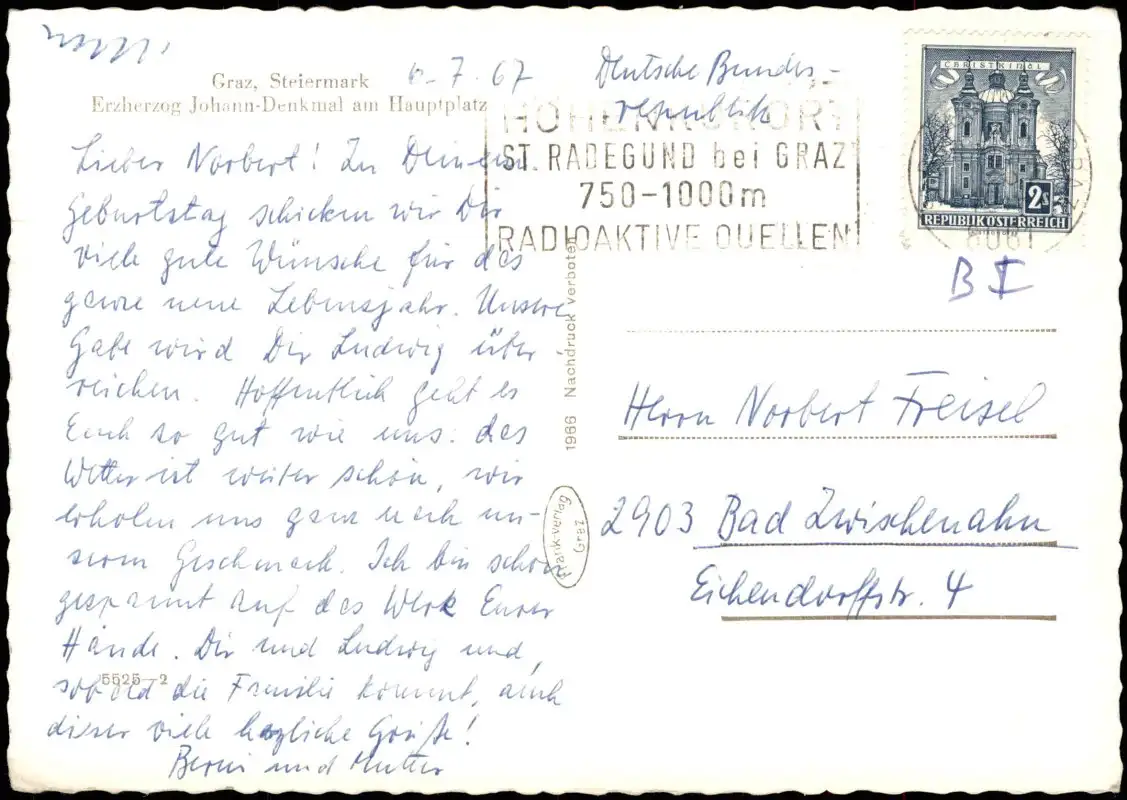 Graz, Steiermark
Erzherzog Johann-Denkmal am Hauptplatz
6-7-67
Lieber Norbert! Zu Deinem
Geburtstag schicken wir Dir
viele gute Wünsche für das
ganze neue Lebensjahr. Unsere
Gabe wird Dir Ludwig über-
reichen. Hoffentlich geht es
Euch so gut wie uns: das
Wetter ist weiter schön, wir
erholen uns ganz nach un-
serm Geschmack. Ich bin schon
gespannt auf das Werk Eurer
Hände. Dir und Ludwig und,
sobald die Familie kommt, auch
dieser viele herzliche Grüße!
und Mutter
5525-2
1966 Nachdruck verboten
Frank-Verlag
Graz
Deutsche Bundes-
republik
HÖHENKURORT
ST. RADEGUND bei GRAZ
750-1000m
RADIOAKTIVE QUELLEN
CHRISTKINDL
2s
REPUBLIK ÖSTERREICH
GRAZ
8061
B I
Herrn Norbert Freisel
2903 Bad Zwischenahn
Eichendorffstr. 4